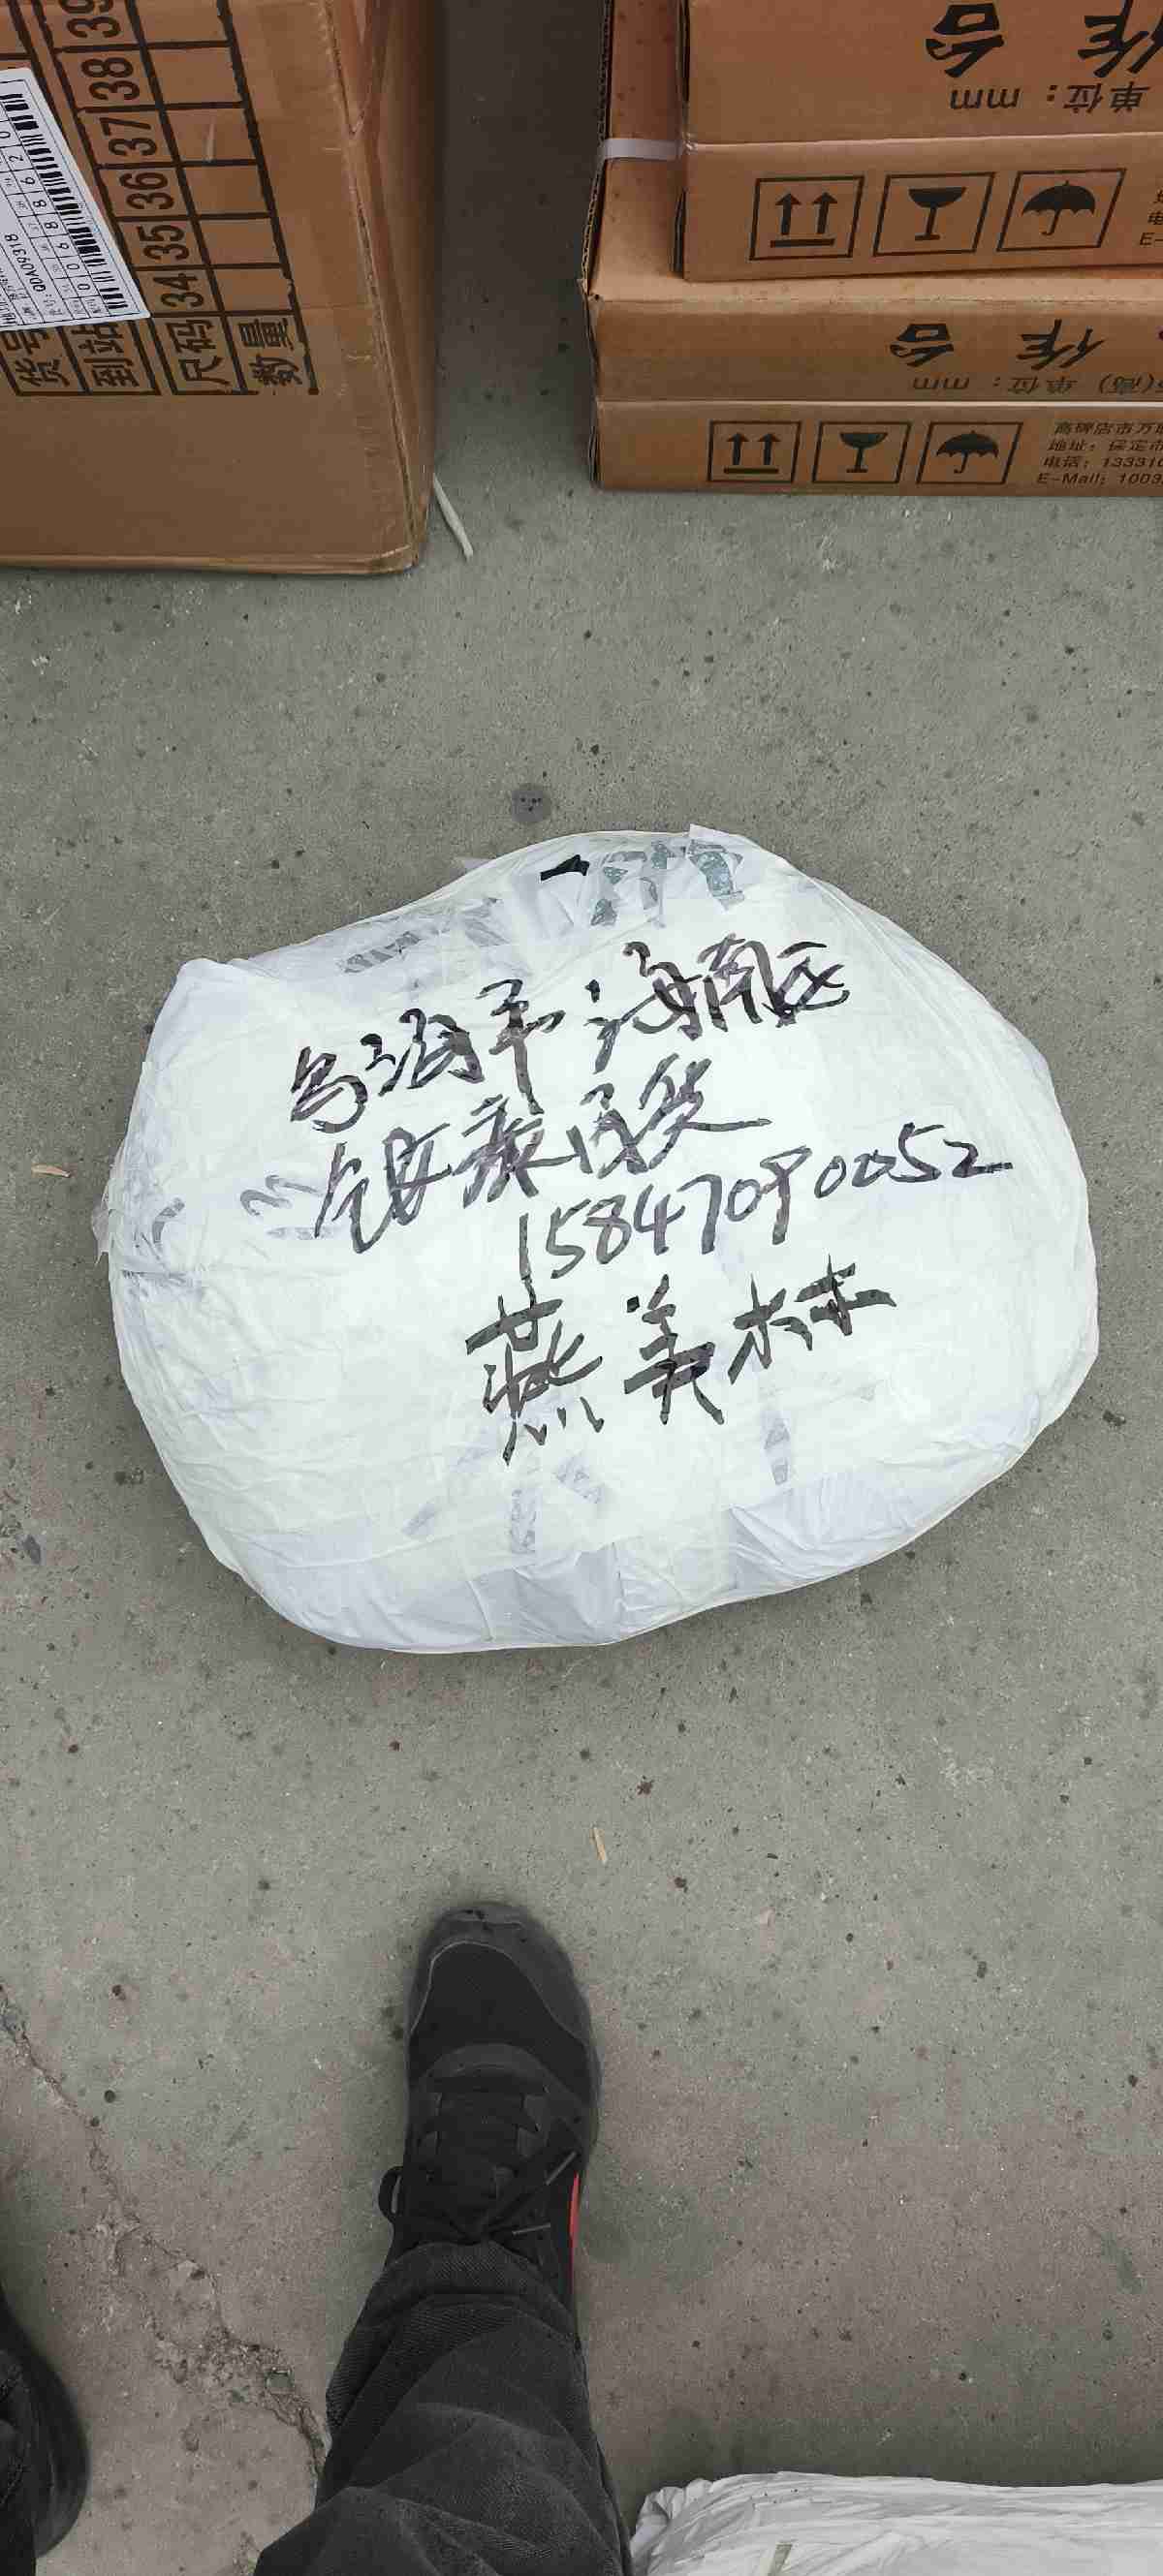 39
38
37
36
35
34
货号
到站
尺码
数量
QDA0931B
作台
单位：mm
E-
作台
(高) 单位：mm
高碑店市万
地址：保定市
电话：133310
E-Mail：1003
乌海市海南区
15847090052
燕美林